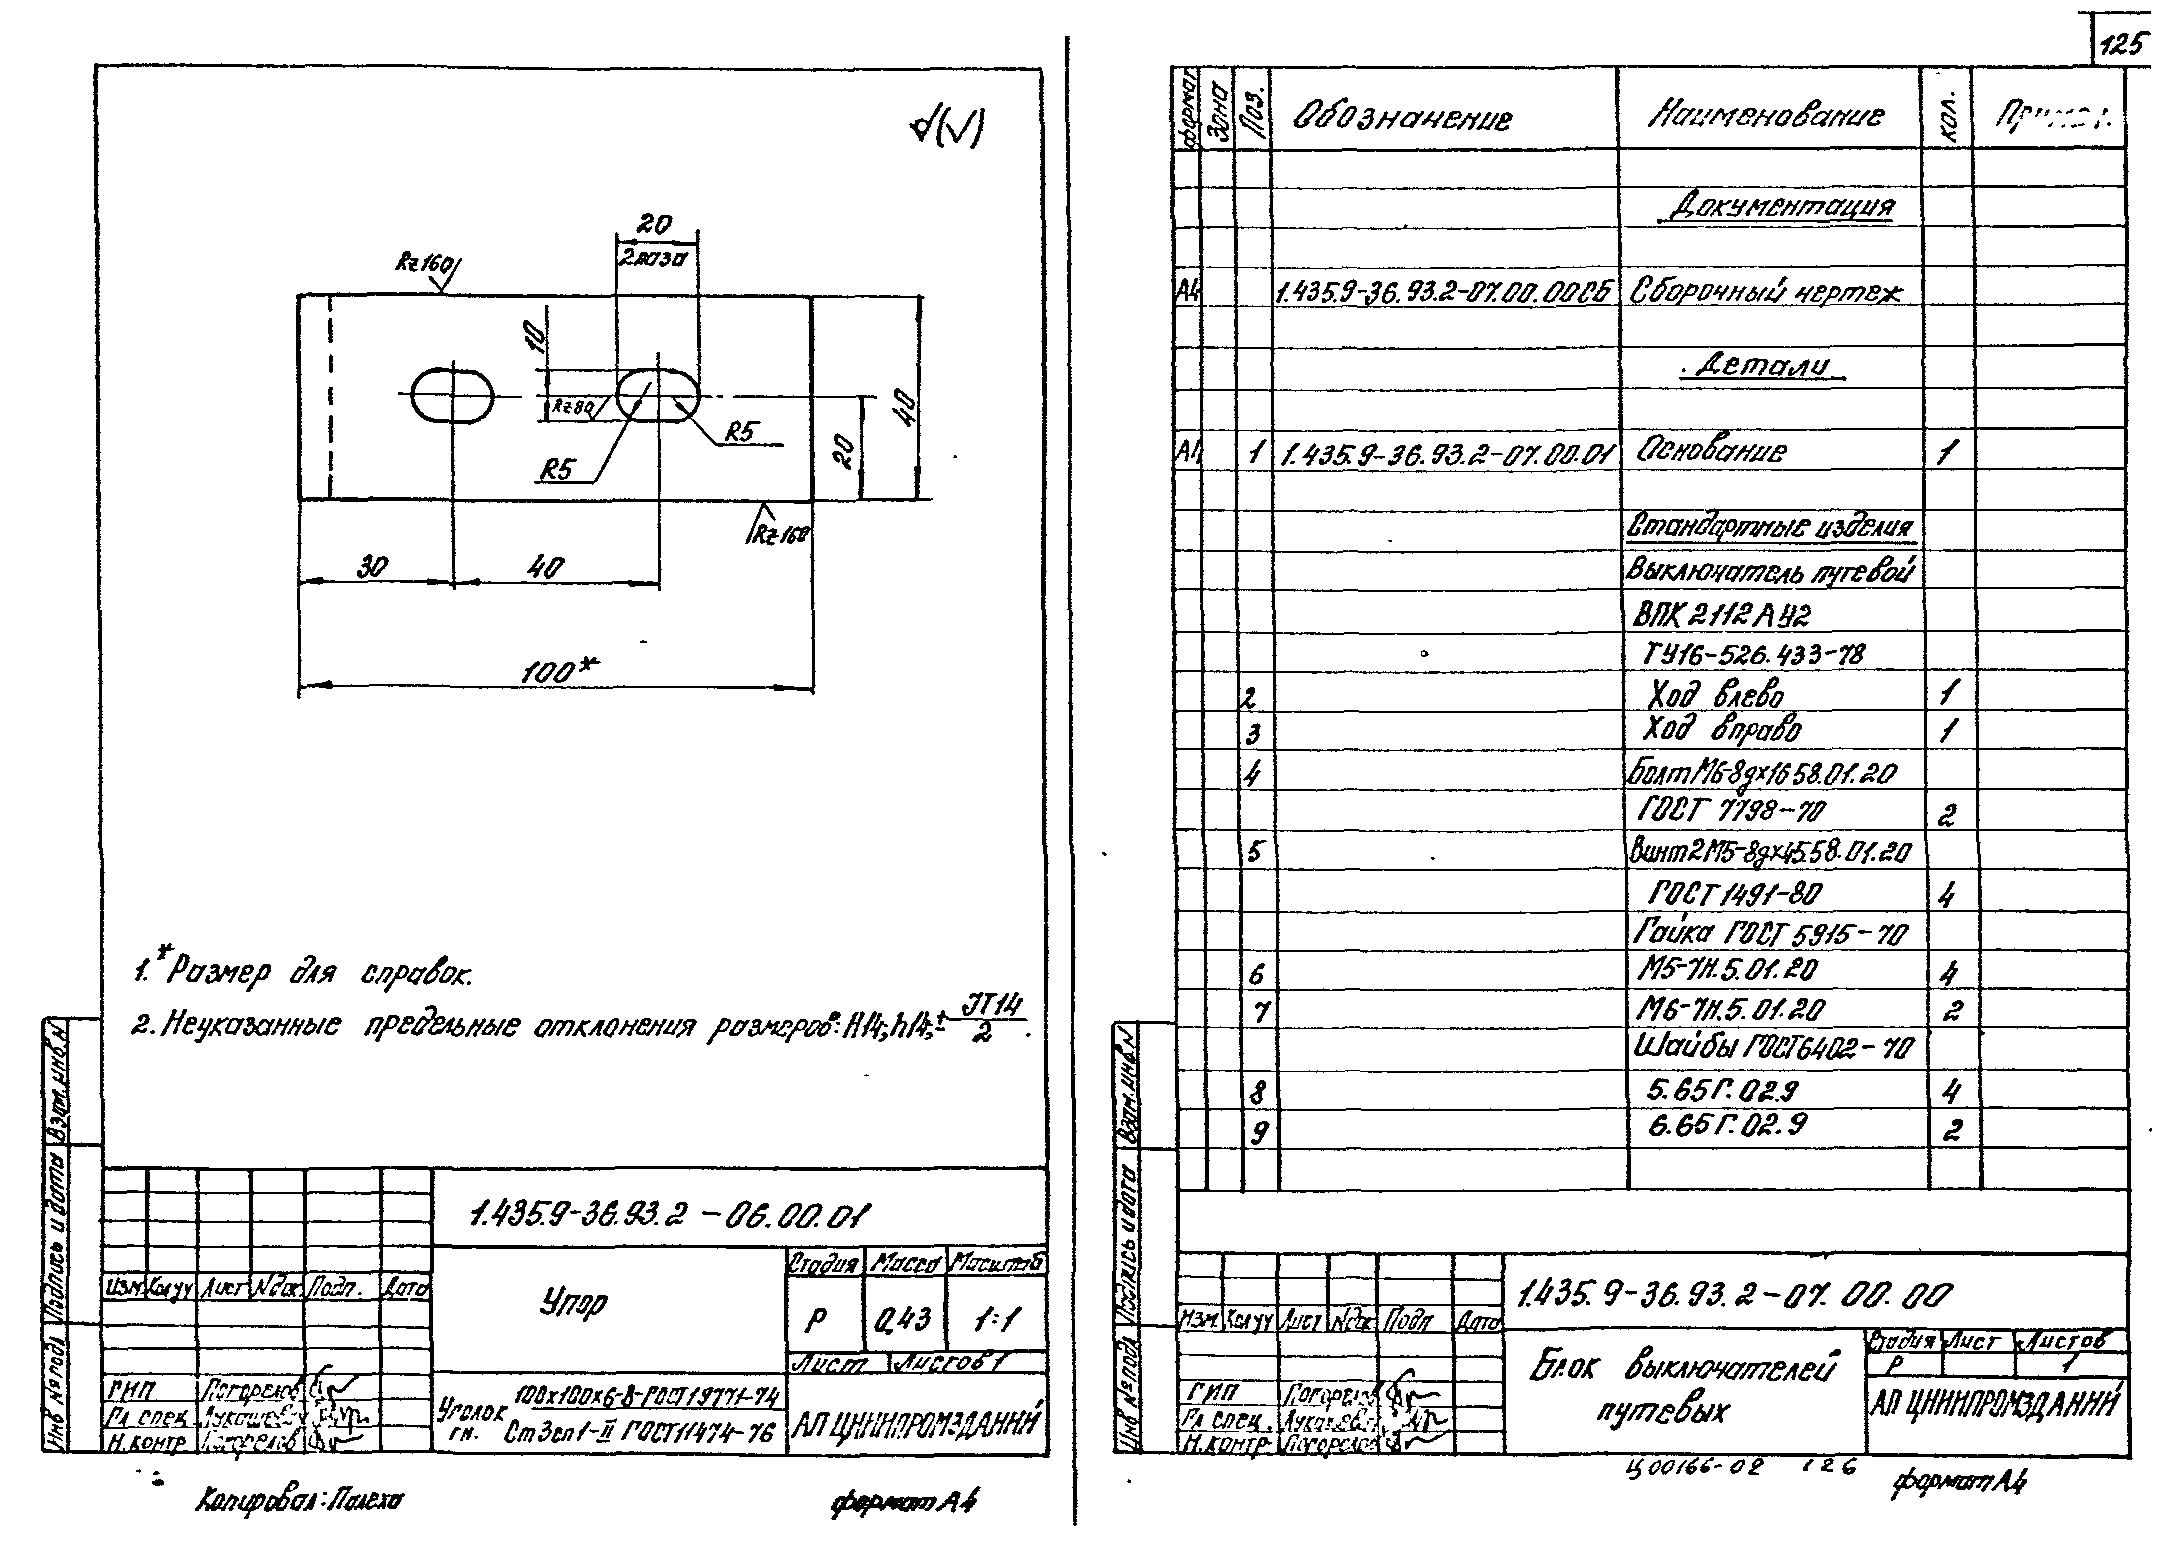 125
20
2 паза
Rz160
10
Rz80
R5
R5
20
40
Rz160
30
40
100*
1.* Размер для справок.
2. Неуказанные предельные отклонения размеров: H14; h14; ± JT14/2.
Взам. инв. N
Подпись и дата
Инв № подл
1.435.9-36.93.2-06.00.01
Изм Кол уч Лист Nдок Подп. Дата
Упор
Стадия Масса Масштаб
Р 0,43 1:1
Лист Листов 1
ГИП Погорелов
Гл спец. Лукашевич
Н.контр Погорелов
Уголок гн. 100x100x6-8-ГОСТ19771-74
Ст3сп1-II ГОСТ11474-76
АП ЦНИИПРОМЗДАНИЙ
Копировал: Палеха
формат А4
Формат Зона Поз. Обозначение Наименование кол.
Документация
А4 1.435.9-36.93.2-07.00.00СБ Сборочный чертеж
Детали
А4 1 1.435.9-36.93.2-07.00.01 Основание 1
Стандартные изделия
Выключатель путевой
ВПК 2112 А У2
ТУ16-526.433-78
2 Ход влево 1
3 Ход вправо 1
4 Болт М6-8gх16 58.01.20
ГОСТ 7798-70 2
5 Винт 2М5-8gх45.58.01.20
ГОСТ 1491-80 4
Гайка ГОСТ 5915-70
6 М5-7Н.5.01.20 4
7 М6-7Н.5.01.20 2
Шайбы ГОСТ6402-70
8 5.65Г.02.9 4
9 6.65Г.02.9 2
Взам. инв. N
Подпись и дата
Инв № подл
1.435.9-36.93.2-07.00.00
Изм. Кол уч Лист Nдок Подп Дата
Блок выключателей
путевых
Стадия Лист Листов
Р 1
ГИП Погорелов
Гл спец. Лукашевич
Н.контр Погорелов
АП ЦНИИПРОМЗДАНИЙ
Ц00166-02 126
формат А4